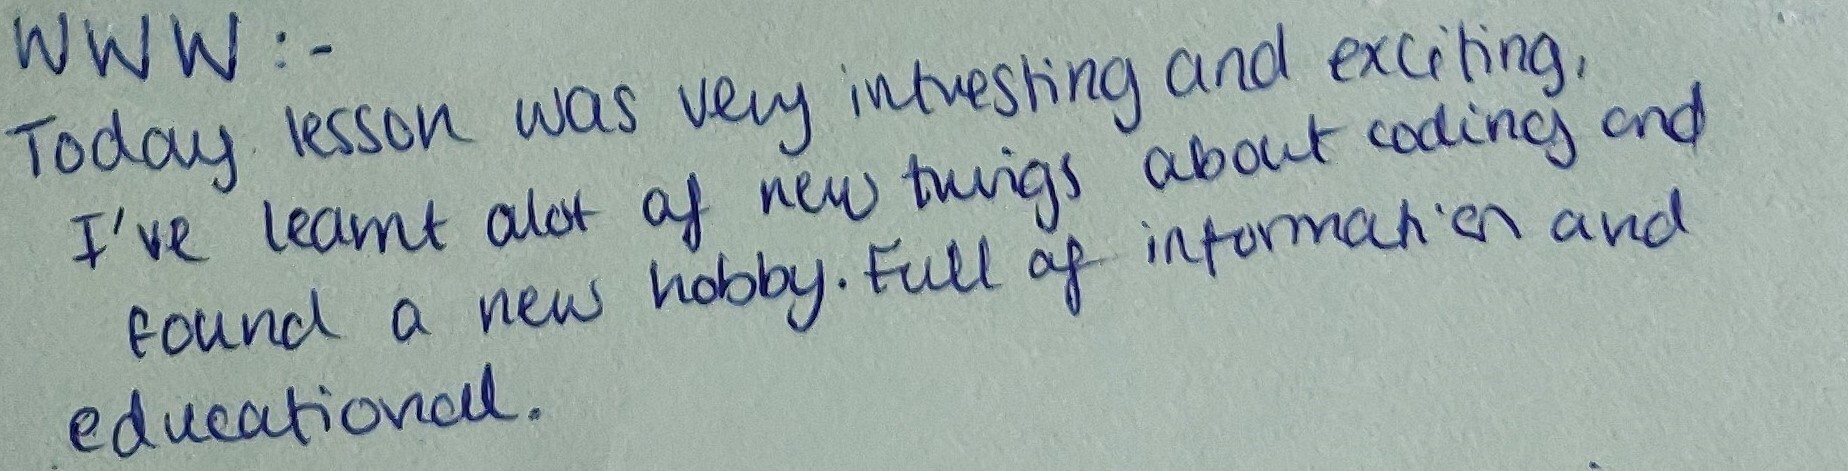 WWW :-
Today lesson was very intresting and exciting,
I've learnt alot of new things about coding and
found a new hobby. Full of information and
educational.